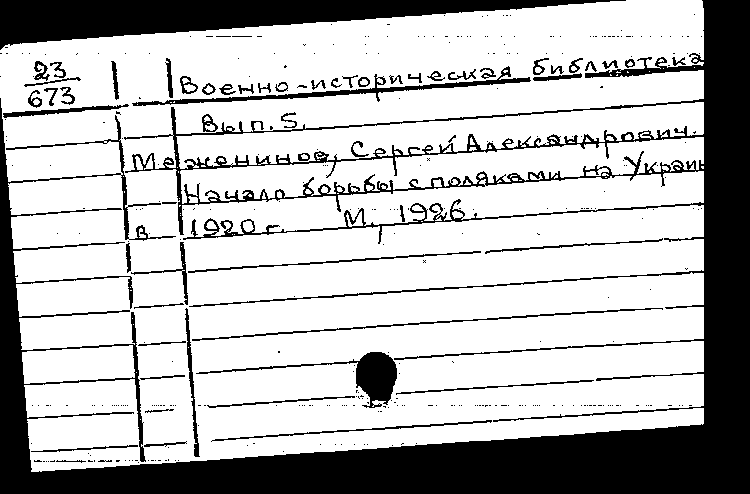 23
673
Военно-историческая библиотека
Вып. 5.
Меженинов, Сергей Александрович.
Начало борьбы с поляками на Украин
в 1920 г. М., 1926.